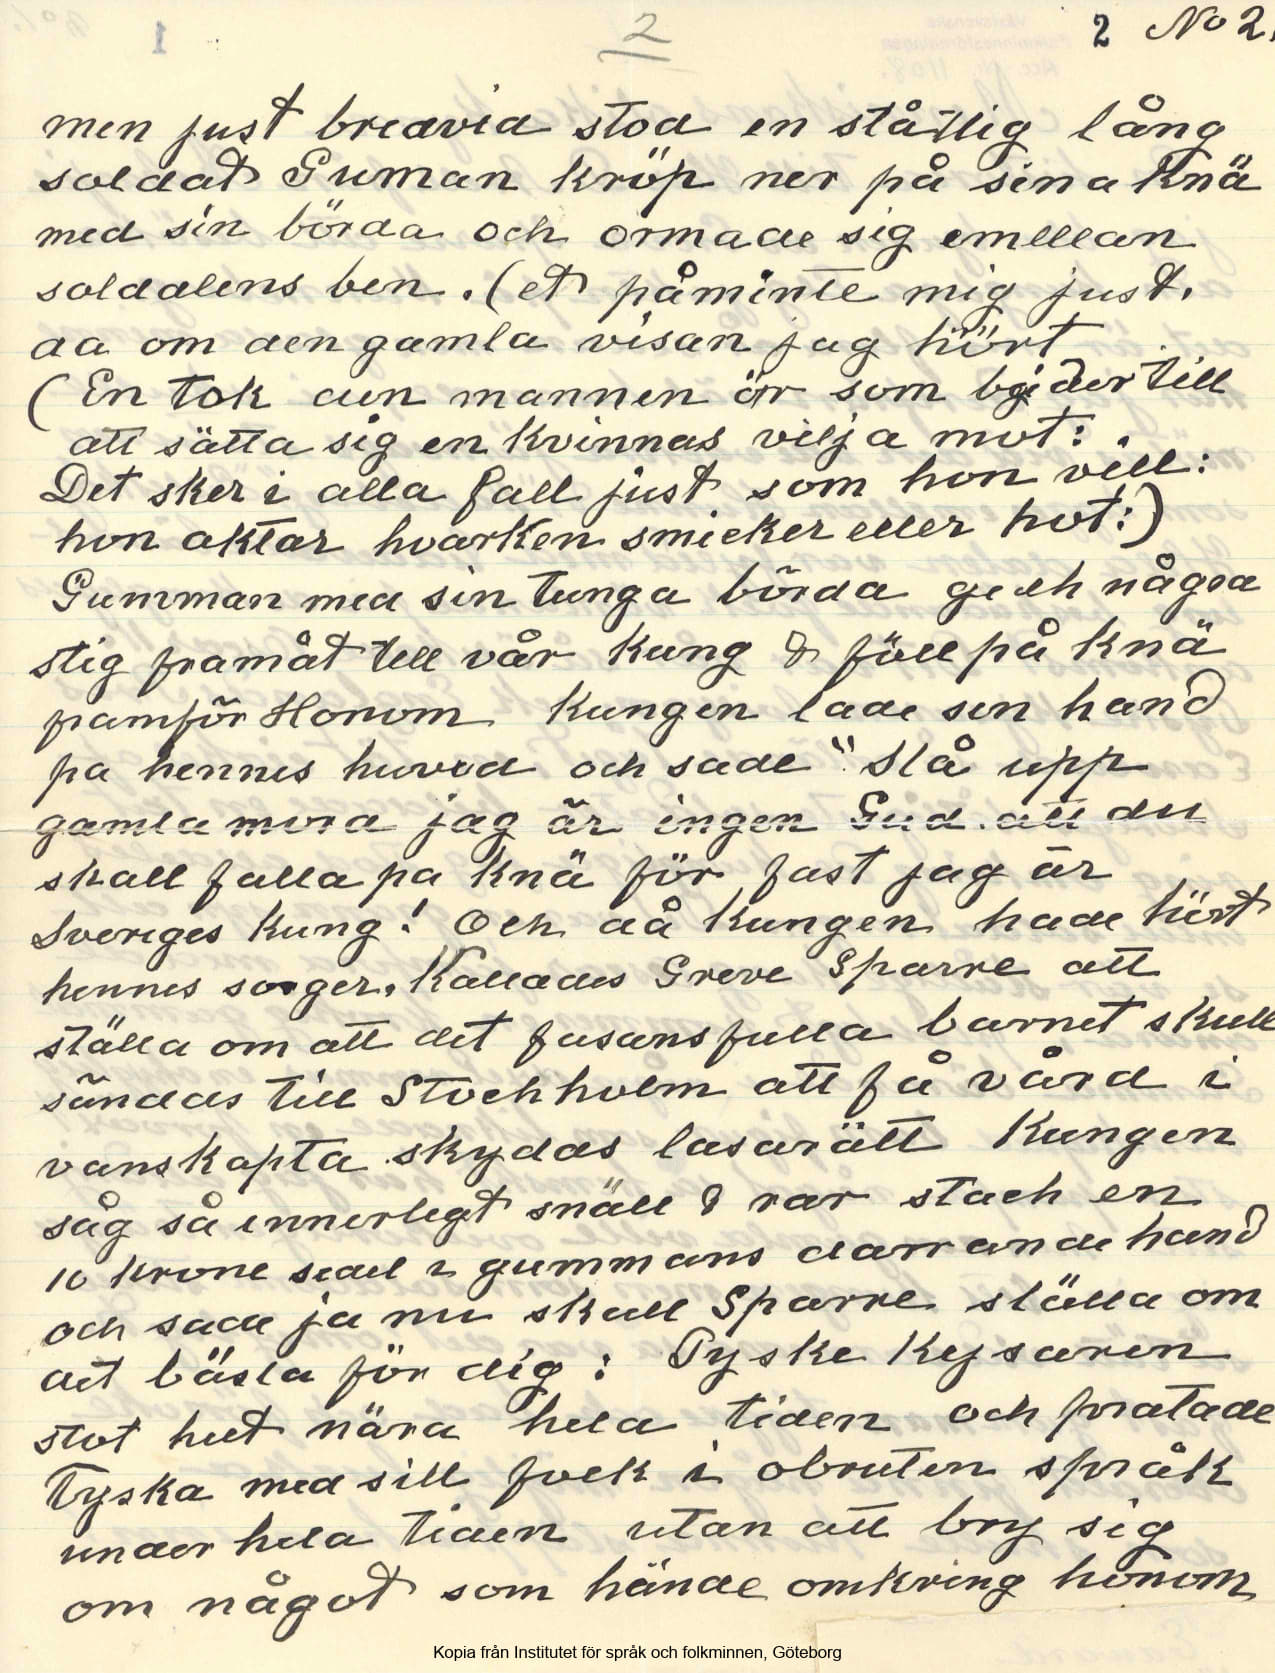 2 2 No 2.
men just bredvid stod en ståtlig lång
soldat Guman kröp ner på sina knä
med sin börda och ormade sig emellan
soldatens ben. (et påminte mig just.
da om den gamla visan jag hört
(En tok den mannen är som bjuder till
att sätta sig en kvinnas vilja mot:
Det sker i alla fall just som hon vill:
hon aktar hvarken smicker eller hot:)
Gumman med sin tunga börda geck några
stig framåt till vår Kung & föll på knä
framför Honom Kungen lade sin hand
pa hennes huvod och sade " Stå upp
gamla mora jag är ingen Gud. att du
skall falla pa knä för fast jag är
Sveriges Kung! Och då Kungen hade hört
hennes sorger. Kallades Greve Sparre att
ställa om att det fasansfulla barnet skull
sändas till Stockholm att få vård i
vanskapta skyddas lasarätt Kungen
såg så innerlegt snäll & rar stack en
10 krone sedel i gummans darrande hand
och sade ja nu skall Sparre ställa om
det bästa för dig: Tyske Kejsaren
stot helt nära hela tiden och pratade
Tyska med sitt folk i obruten språk
under hela tiden utan att bry sig
om något som hände omkring honom
Kopia från Institutet för språk och folkminnen, Göteborg